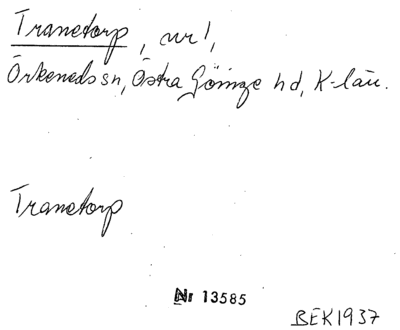 Tranetorp, nr 1,
Örkeneds sn, Östra Göinge hd, K-län.
Tranetorp
Nr 13585
BEK1937